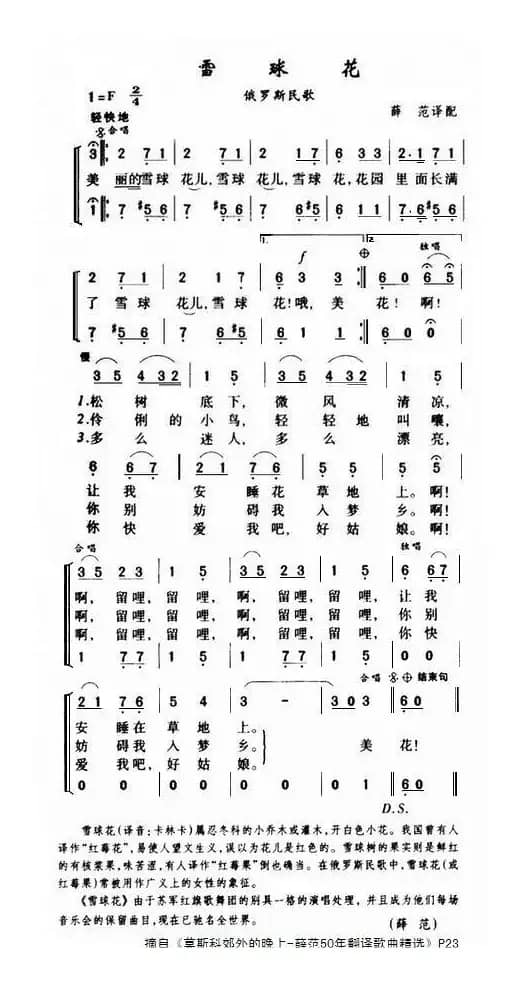 雪 球 花
1=F 2/4
俄罗斯民歌
薛 范译配
轻快地
合唱
3 2 7 1 2 2 7 1 2 2 1 7 6 3 3 2·1 7 1
美 丽的雪球 花儿,雪球 花儿,雪球 花,花园 里面长满
1 7 #5 6 7 7 #5 6 7 7 6 #5 6 1 1 7·6 #5 6
1. 2. 独唱
f
2 7 1 2 2 1 7 6 3 3 6 0 6 5
了 雪球 花儿,雪球 花!哦,美 花! 啊!
7 #5 6 7 7 6 #5 6 1 1 6 0 0
慢
3 5 4 3 2 1 5 3 5 4 3 2 1 5
1.松 树 底 下, 微 风 清 凉,
2.伶 俐 的 小 鸟, 轻 轻 地 叫 嚷,
3.多 么 迷 人, 多 么 漂 亮,
6 6 7 2 1 7 6 5 5 5 5
让 我 安 睡 花 草 地 上。啊!
你 别 妨 碍 我 入 梦 乡。啊!
你 快 爱 我 吧, 好 姑 娘。啊!
合唱 独唱
3 5 2 3 1 5 3 5 2 3 1 5 6 6 7
啊, 留哩, 留 哩, 啊, 留哩, 留 哩, 让 我
啊, 留哩, 留 哩, 啊, 留哩, 留 哩, 你 别
啊, 留哩, 留 哩, 啊, 留哩, 留 哩, 你 快
1 7 7 1 5 1 7 7 1 5 0 0
合唱 结束句
2 1 7 6 5 4 3 - 3 0 3 6 0
安 睡在 草 地 上。
妨 碍我 入 梦 乡。 美 花!
爱 我吧, 好 姑 娘。
0 0 0 0 0 0 0 1 6 0
D.S.
雪球花(译音:卡林卡)属忍冬科的小乔木或灌木,开白色小花。我国曾有人
译作“红莓花”,易使人望文生义,误以为花儿是红色的。雪球树的果实则是鲜红
的有核浆果,味苦涩,有人译作“红莓果”倒也确当。在俄罗斯民歌中,雪球花(或
红莓果)常被用作广义上的女性的象征。
《雪球花》由于苏军红旗歌舞团的别具一格的演唱处理,并且成为他们每场
音乐会的保留曲目,现在已驰名全世界。
(薛 范)
摘自《莫斯科郊外的晚上-薛范50年翻译歌曲精选》P23